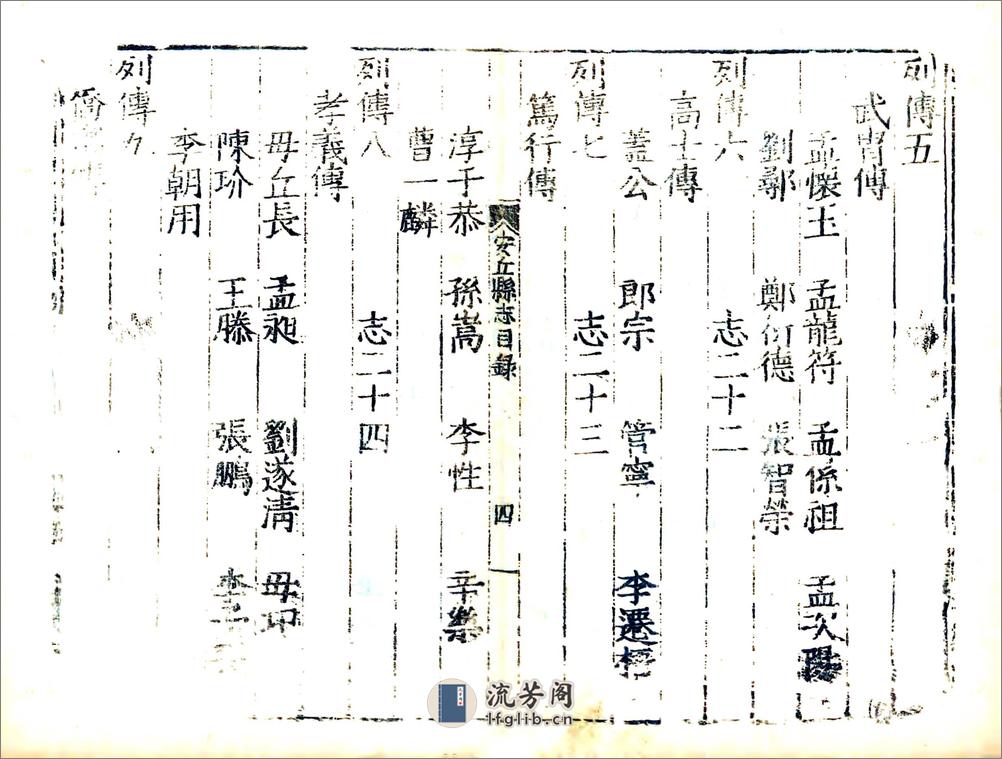 列傳五
武胄傳
孟懷玉 孟龍符 孟係祖 孟次陽
劉鄩 鄭衍德 張智榮
列傳六 志二十二
高士傳
蓋公 郎宗 管寧 李遷梧
列傳七 志二十三
篤行傳
淳于恭 孫嵩 李性 辛樂
曹一麟
安丘縣志目録 四
列傳八 志二十四
孝義傳
毋丘長 孟昶 劉遂清 毋卬
陳玠 王縢 張鵬 李
李朝用
列傳九
流芳阁
lfglib.cn